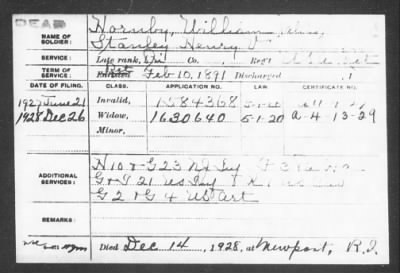 DEAD
NAME OF SOLDIER:
Hornby, William alias,
Stanley Henry
SERVICE:
Late rank, Co. Reg't
TERM OF SERVICE:
Enlisted Feb 10, 1891 Discharged , 1
DATE OF FILING. CLASS. APPLICATION NO. LAW. CERTIFICATE NO.
1927 June 21 Invalid, 1584368
1928 Dec 26 Widow, 1630640 5-1-20 A-4-13-29
Minor,
ADDITIONAL SERVICES:
H 10 & G 23 NY Inf
G & I 21 US Inf
G 2 & G 4 US Art
REMARKS:
Died Dec 14, 1928, at Newport, R.I.